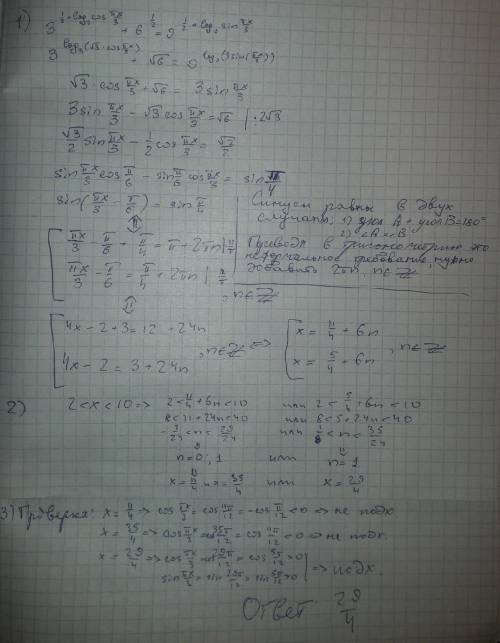 1) 3^{1/2 + log₃ cos πx/3} + 6^{1/2} = 9^{1/2 + log₉ sin πx/3}
3^{log₃(√3·cos πx/3)} + √6 = 9^{log₉(3sin(πx/3))}
√3 cos πx/3 + √6 = 3sin πx/3
3sin πx/3 - √3 cos πx/3 = √6 | : 2√3
√3/2 sin πx/3 - 1/2 cos πx/3 = √2/2
sin πx/3 cos π/6 - sin π/6 cos πx/3 = sin π/4
sin(πx/3 - π/6) = sin π/4
Синусы равны в двух
случаях: 1) угол A + угол B = 180°
2) ∠A = ∠B
Приводя в тригонометрию это
неформальное требование, нужно
добавить 2πn, n∈Z
[ πx/3 - π/6 + π/4 = π + 2πn | : π/12
πx/3 - π/6 = π/4 + 2πn | : π/12 , n∈Z
[ 4x - 2 + 3 = 12 + 24n
4x - 2 = 3 + 24n , n∈Z ⇔ [ x = 11/4 + 6n
x = 5/4 + 6n , n∈Z
2) 2 < x < 10 => 2 < 11/4 + 6n < 10 или 2 < 5/4 + 6n < 10
8 < 11 + 24n < 40 или 8 < 5 + 24n < 40
-3/24 < n < 29/24 или 1/8 < n < 35/24
n = 0; 1 или n = 1
x = 11/4 и x = 35/4 или x = 29/4
3) Проверка: x = 11/4 => cos πx/3 = cos 11π/12 = -cos π/12 < 0 => не подх
x = 35/4 => cos πx/3 = cos 35π/12 = cos 11π/12 < 0 => не подх.
x = 29/4 => cos πx/3 = cos 29π/12 = cos 5π/12 > 0
sin πx/3 = sin 29π/12 = sin 5π/12 > 0 | => подх.
Ответ 29/4